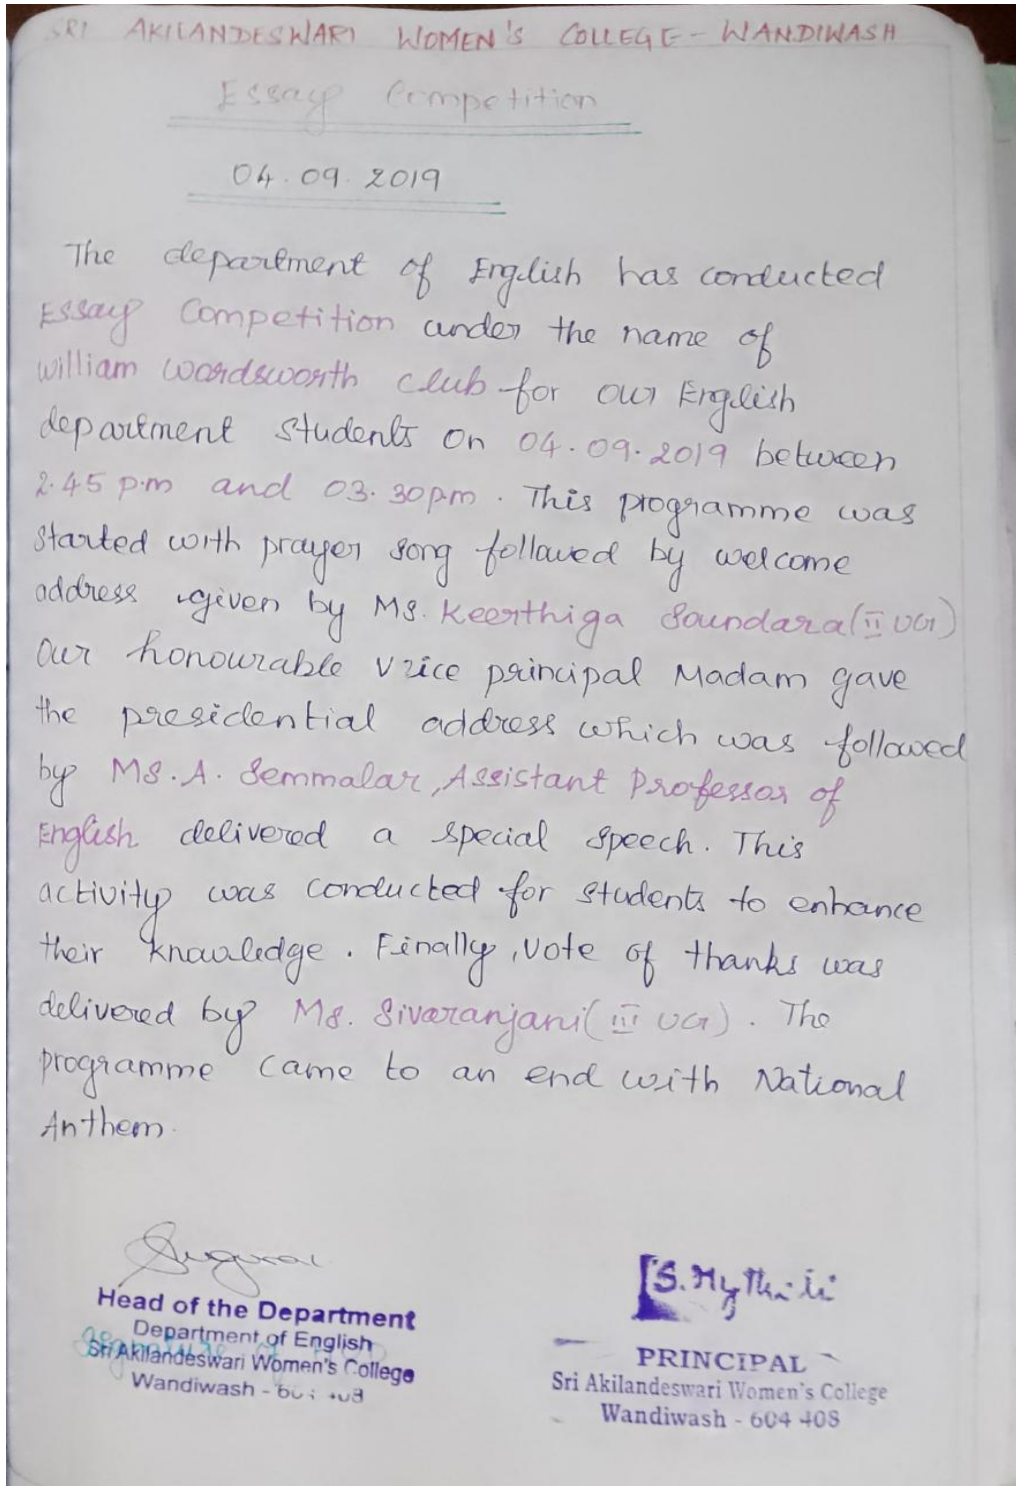 SRI AKILANDESWARI WOMEN'S COLLEGE - WANDIWASH
Essay Competition
04.09.2019
The department of English has conducted
Essay Competition under the name of
William Wordsworth Club for our English
department students on 04.09.2019 between
2.45 p.m and 03.30 p.m. This programme was
started with prayer song followed by welcome
address given by Ms. Keerthiga Soundara (II UG)
Our honourable Vice principal Madam gave
the presidential address which was followed
by Ms. A. Semmalar, Assistant Professor of
English delivered a special speech. This
activity was conducted for students to enhance
their knowledge. Finally, vote of thanks was
delivered by Ms. Sivaranjani (III UG). The
programme came to an end with National
Anthem.
Head of the Department
Department of English
Sri Akilandeswari Women's College
Wandiwash -
S. Mythili
PRINCIPAL
Sri Akilandeswari Women's College
Wandiwash - 604 408